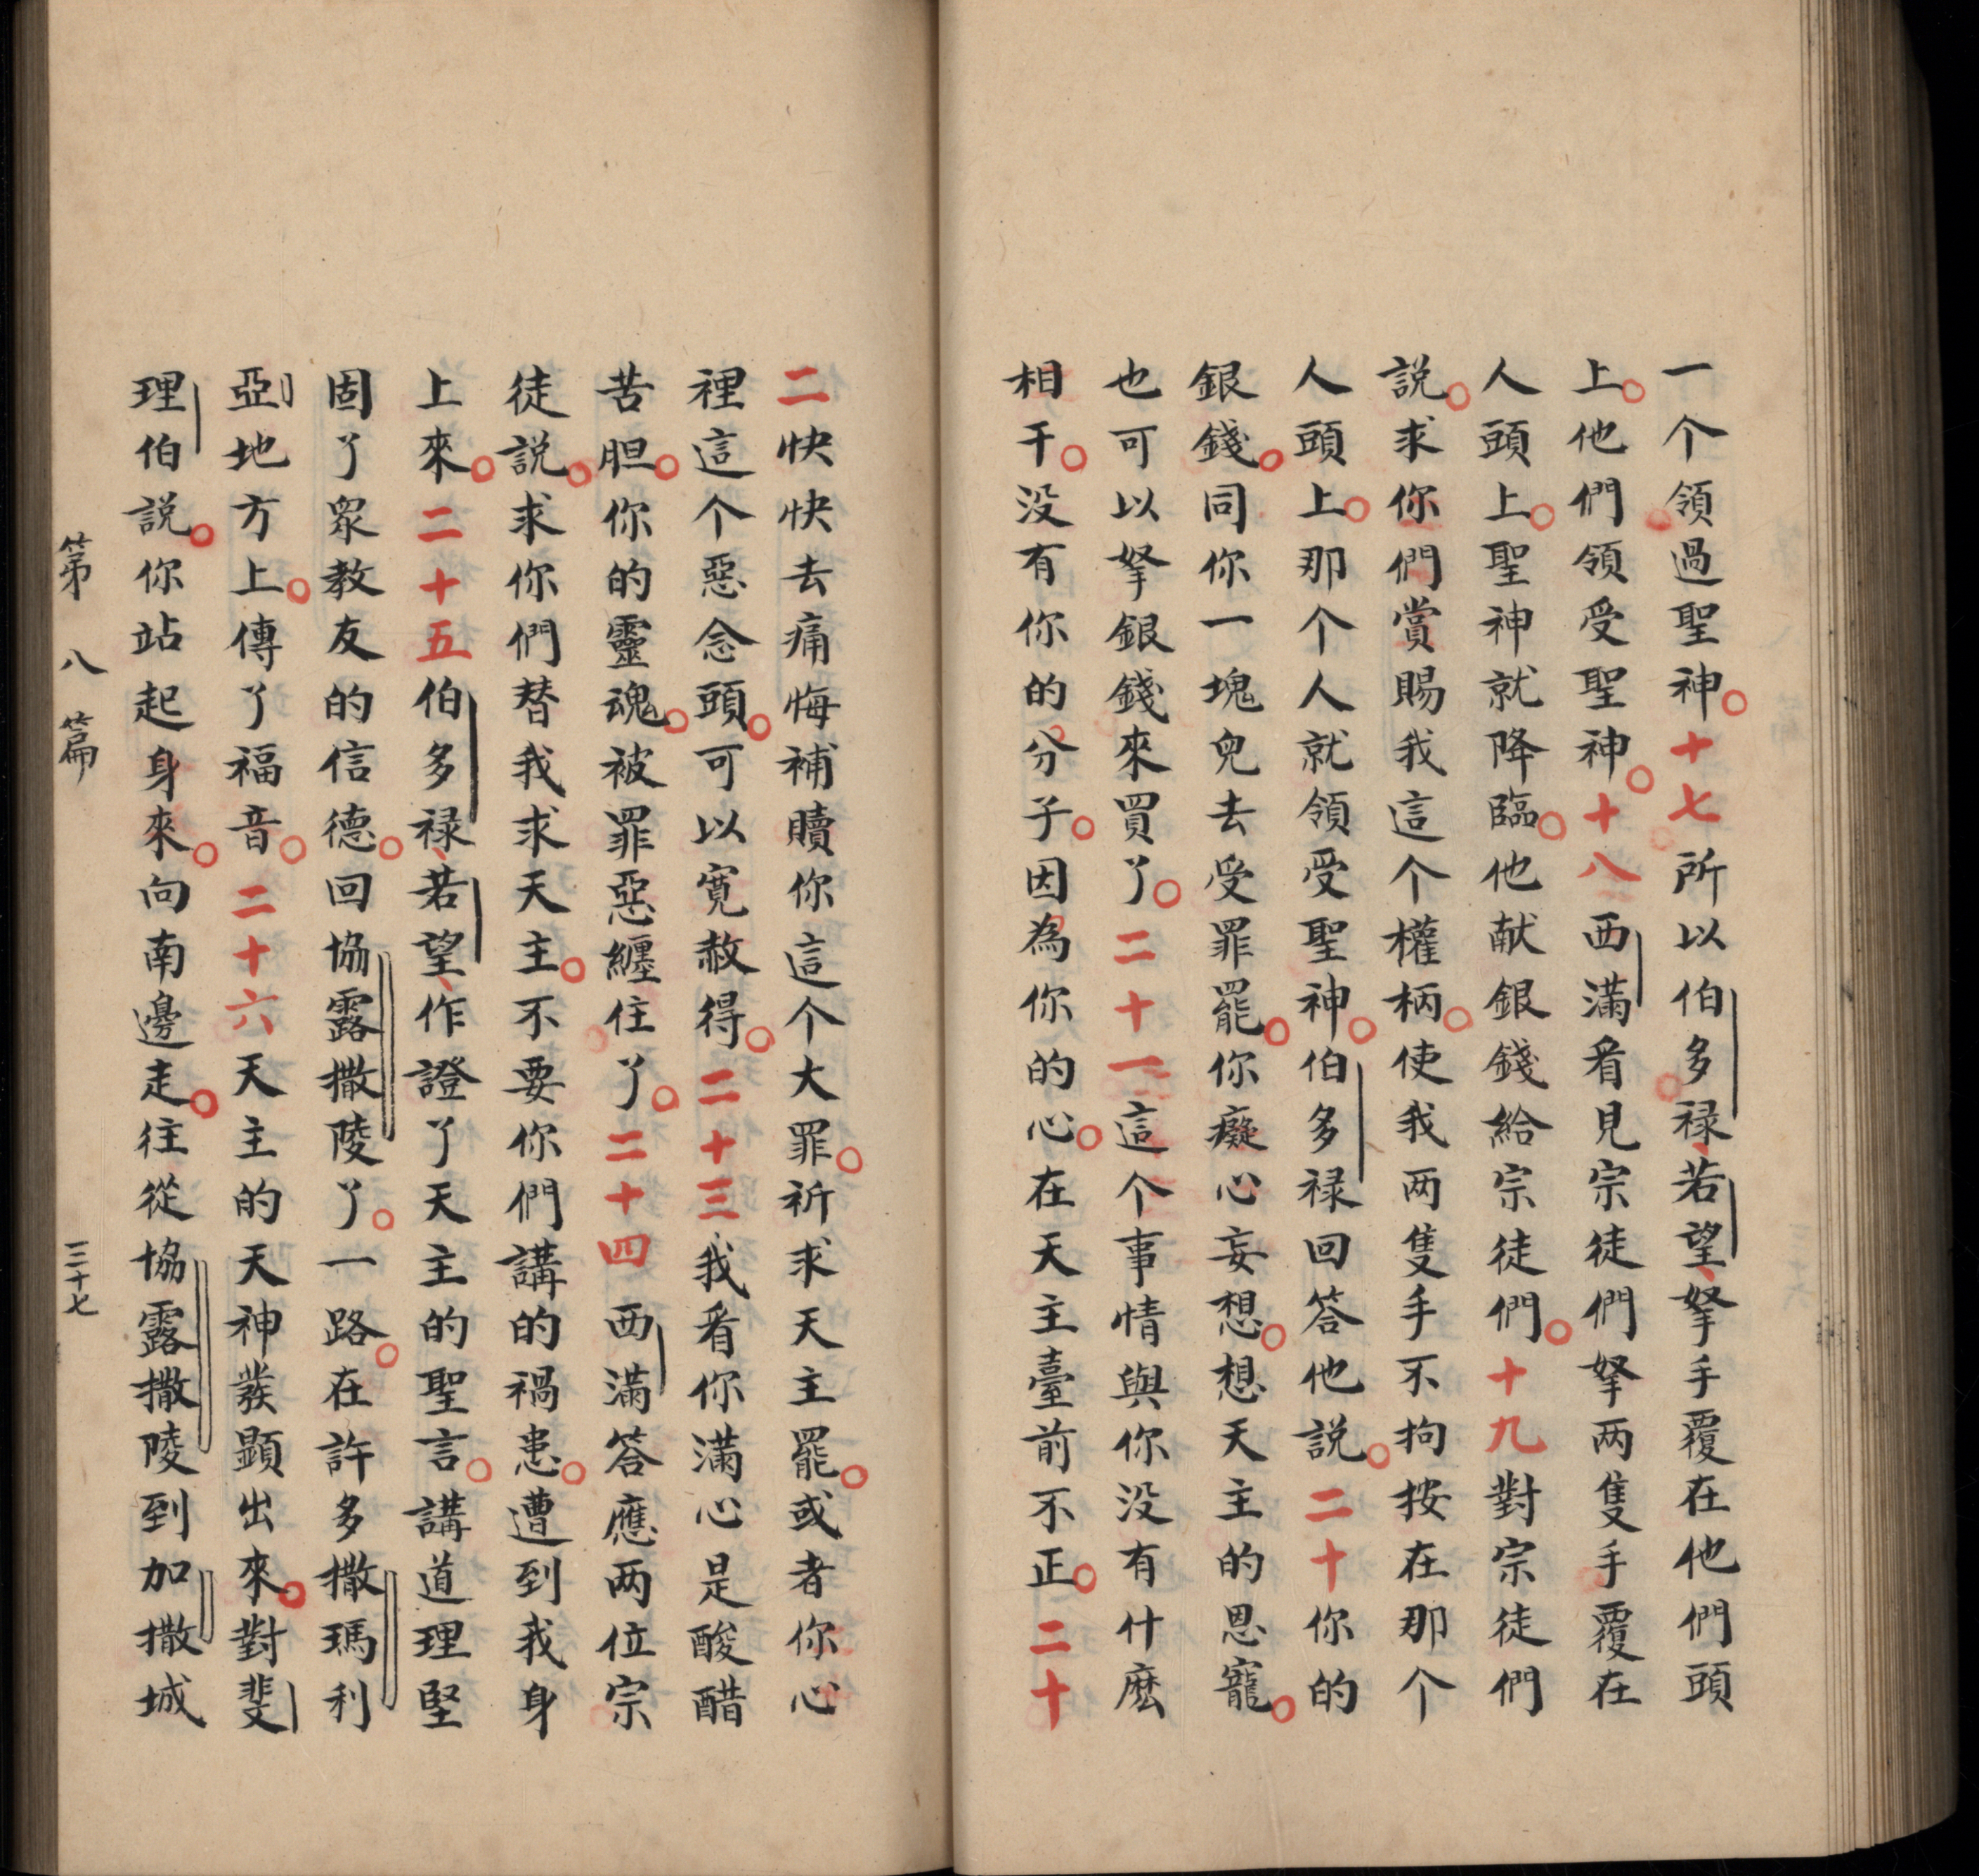 一个領過聖神。十七所以伯多禄、若望、拏手覆在他們頭
上。他們領受聖神。十八西滿看見宗徒們拏两隻手覆在
人頭上。聖神就降臨。他献銀錢給宗徒們。十九對宗徒們
説。求你們賞賜我這个權柄。使我两隻手不拘按在那个
人頭上。那个人就領受聖神。伯多禄回答他説。二十你的
銀錢。同你一塊兒去受罪罷。你癡心妄想。想天主的恩寵。
也可以拏銀錢來買了。二十一這个事情與你没有什麽
相干。没有你的分子。因為你的心。在天主臺前不正。二十
二快快去痛悔補贖你這个大罪。祈求天主罷。或者你心
裡這个惡念頭。可以寬赦得。二十三我看你滿心是酸醋
苦胆。你的靈魂。被罪惡纏住了。二十四西滿答應两位宗
徒説。求你們替我求天主。不要你們講的禍患。遭到我身
上來。二十五伯多禄、若望、作證了天主的聖言。講道理堅
固了眾教友的信德。回協露撒陵了。一路。在許多撒瑪利
亞地方上。傳了福音。二十六天主的天神發顯出來。對斐
理伯説。你站起身來。向南邊走。往從協露撒陵到加撒城
第八篇 三十七